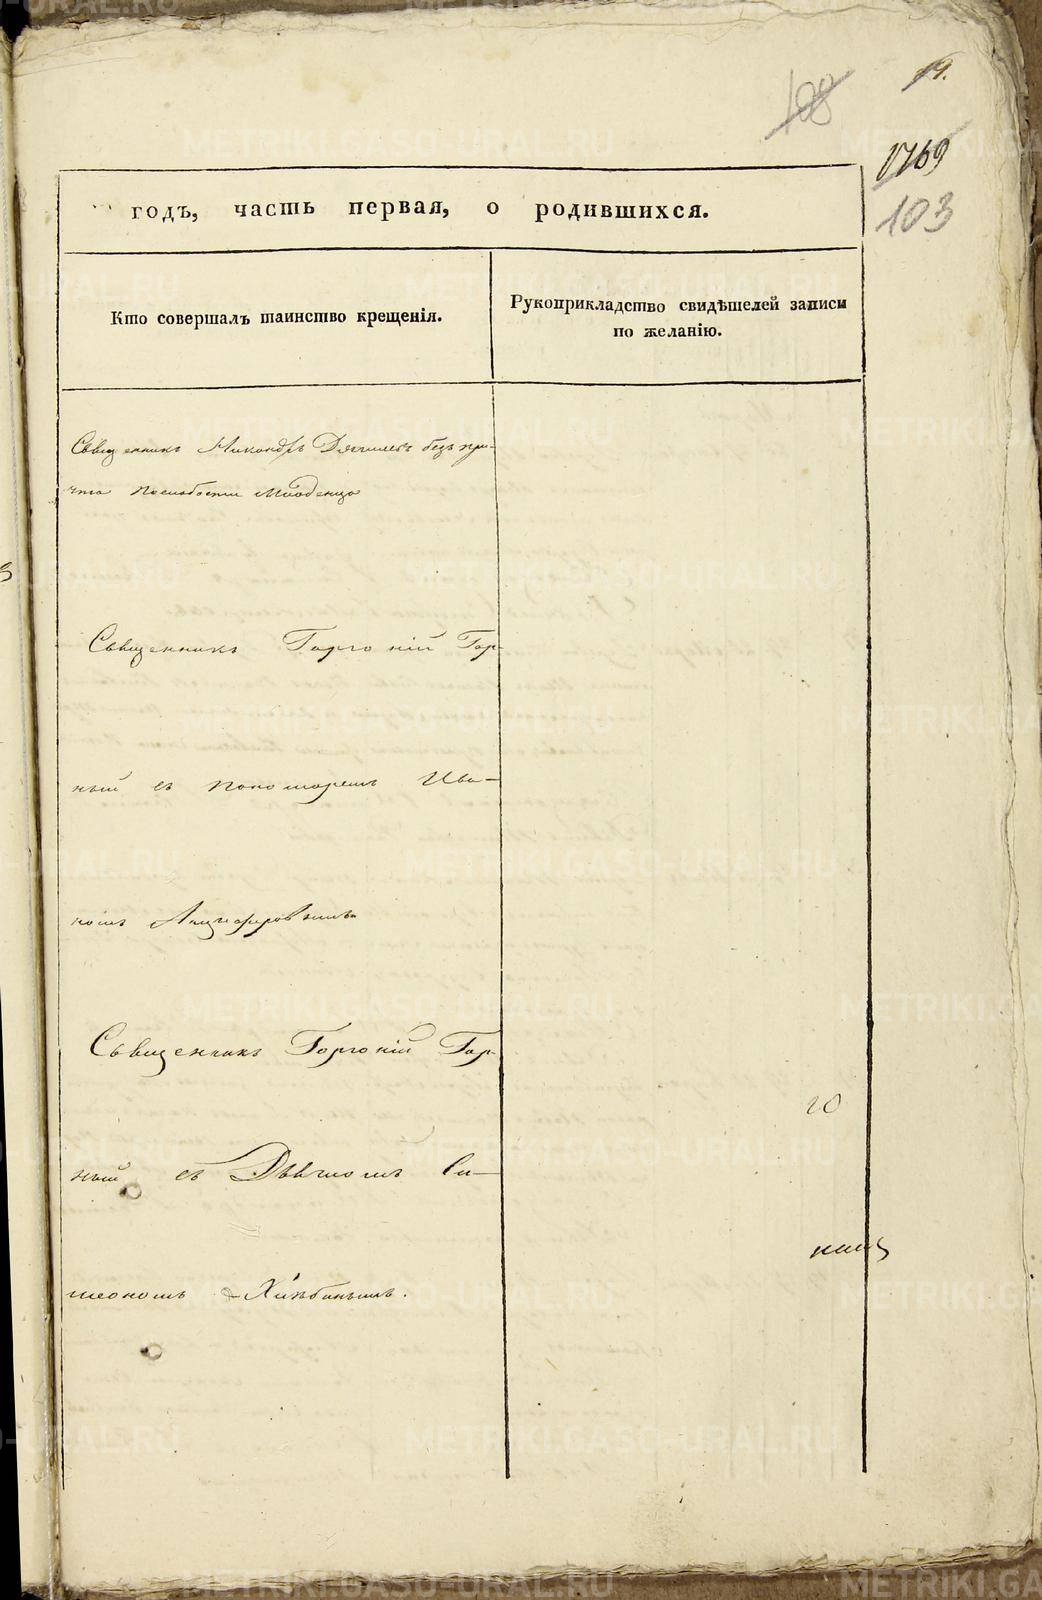 19.
108
1769
103
годъ, часть первая, о родившихся.
Кто совершалъ таинство крещенія.
Рукоприкладство свидѣтелей записи
по желанію.
Священникъ Никандръ Дягилевъ безъ при-
чта послабости младенца
Священникъ Горгоній Гор-
ный съ пономаремъ Ива-
номъ
Священникъ Горгоній Гор-
20
ный съ Дьячкомъ Си-
меономъ Хлѣбинымъ.
METRIKI.GASO-URAL.RU